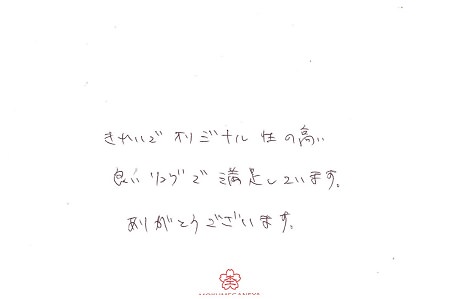 きれいで オリジナル 性の高い
良い リングで 満足しています。
ありがとうございます。
MOKUMEGANEYA